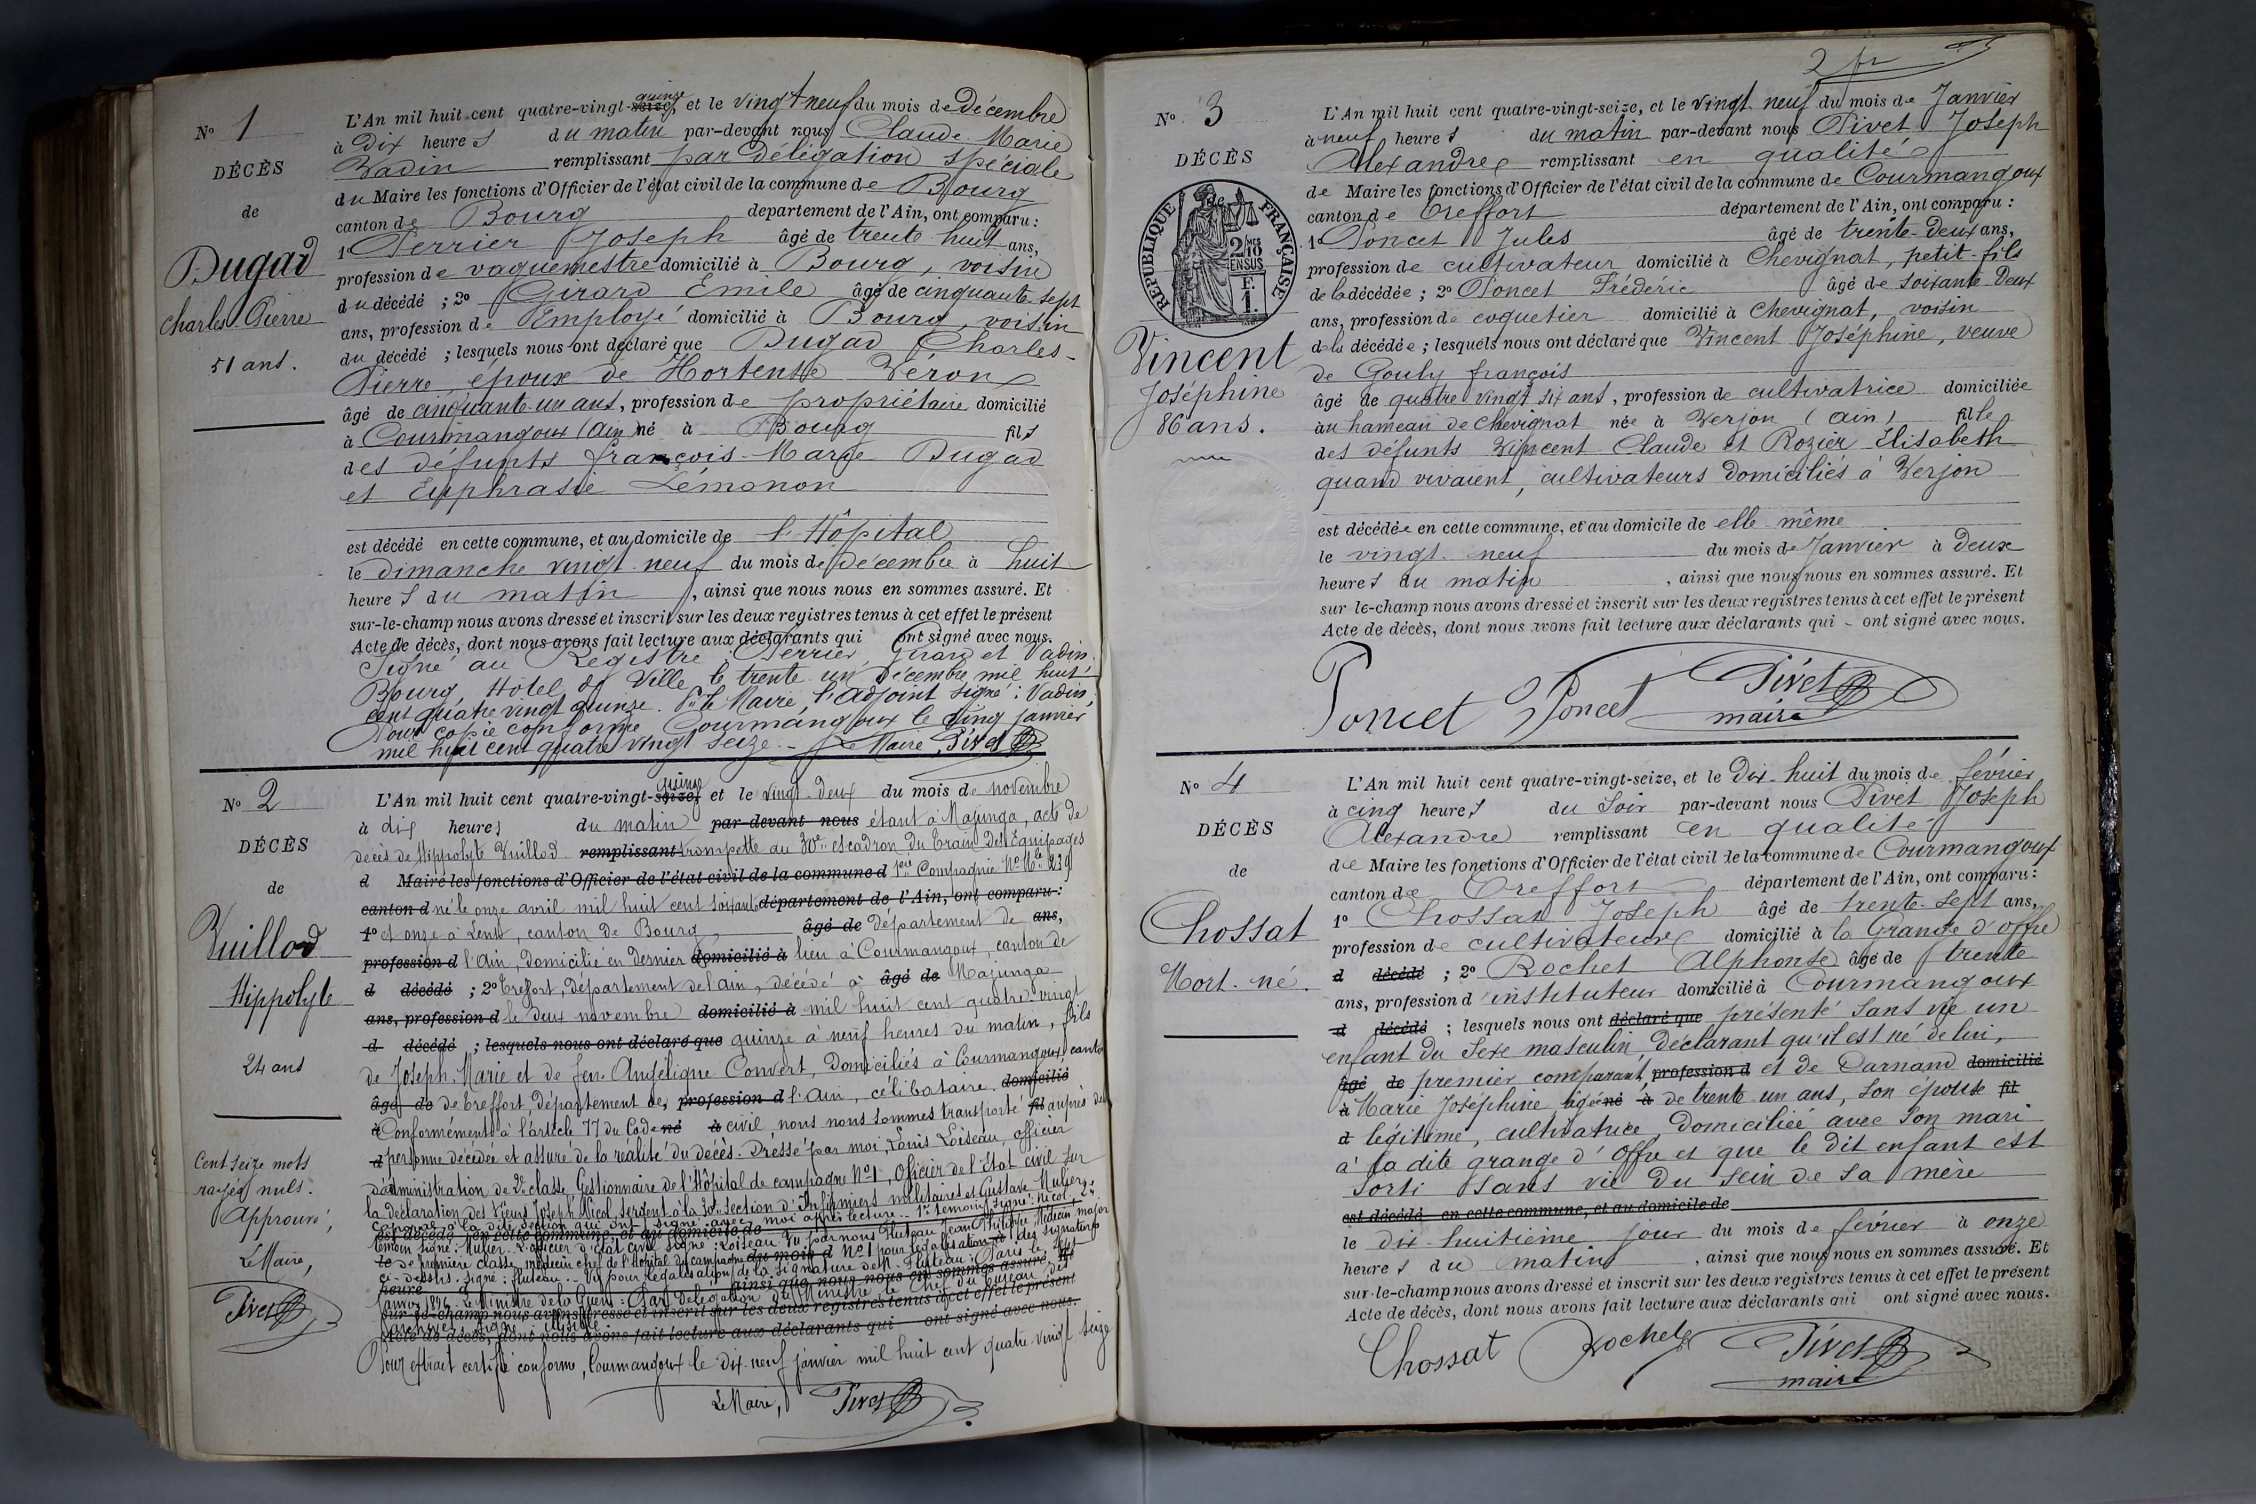 N° 1
DÉCÈS
de
Dugad
Charles-Pierre
51 ans.
quinze
L'An mil huit-cent quatre-vingt-seize, et le vingt neuf du mois de Décembre
à Dix heures du matin par-devant nous Claude Marie
Vadin remplissant par délégation spéciale
du Maire les fonctions d'Officier de l'état civil de la commune de Bourg
canton de Bourg département de l'Ain, ont comparu :
1° Perrier Joseph âgé de trente-huit ans,
profession de vaguemestre domicilié à Bourg, voisin
du décédé ; 2° Girard Emile âgé de cinquante-sept
ans, profession de Employé domicilié à Bourg, voisin
du décédé ; lesquels nous ont déclaré que Dugad Charles-
Pierre, époux de Hortense Véron
âgé de cinquante-un ans, profession de propriétaire domicilié
à Courmangoux (Ain) né à Bourg fils
des défunts françois-Marie Dugad
et Euphrasie Lémonon
est décédé en cette commune, et au domicile de l'Hôpital
le dimanche vingt-neuf du mois de Décembre à huit
heures du matin, ainsi que nous nous en sommes assuré. Et
sur-le-champ nous avons dressé et inscrit sur les deux registres tenus à cet effet le présent
Acte de décès, dont nous avons fait lecture aux déclarants qui ont signé avec nous.
Signé au Registre Perrier, Girard et Vadin.
Bourg, Hôtel de Ville, le trente-un Décembre mil huit
cent quatre vingt quinze. Pr le Maire, l'adjoint signé : Vadin.
Pour copie conforme Courmangoux le cinq janvier
mil huit cent quatre vingt seize. - Le Maire, Pivet
N° 2
DÉCÈS
de
Vuillod
Hippolyte
24 ans
Cent seize mots
rayés nuls.
Approuvé,
Le Maire,
Pivet
quinze
L'An mil huit cent quatre-vingt-seize, et le vingt-deux du mois de novembre
à dix heures du matin par-devant nous étant à Majunga, acte de
décès de Hippolyte Vuillod remplissant trompette au 30e escadron du Train des Equipages
d Maire les fonctions d'Officier de l'état civil de la commune d 1ère Compagnie No Mle 239
canton d né le onze avril mil huit cent soixante département de l'Ain, ont comparu :
1° et onze à Lent, canton de Bourg, âgé de département de ans,
profession d l'Ain, domicilié en dernier domicilié à lieu à Courmangoux, canton de
d décédé ; 2° Treffort, département de l'ain, décédé à âgé de Majunga
ans, profession d le deux novembre domicilié à mil huit cent quatre-vingt
d décédé ; lesquels nous ont déclaré que quinze à neuf heures du matin, fils
de Joseph-Marie et de feue Angélique Convert, Domiciliés à Courmangoux, canton
âgé de de Treffort, département de, profession d l'Ain, célibataire. domicilié
à Conformément à l'article 77 du Code né à civil nous nous sommes transporté fil auprès de la
d personne décédée et assuré de la réalité du décès. Dressé par moi, Louis Loiseau, officier
d'administration de 2e classe, Gestionnaire de l'Hôpital de campagne N°1, Officier de l'Etat civil sur
la déclaration des sieurs Joseph Nicol, sergent à la 30e section d'Infirmiers militaires et Gustave Mulier,
caporal à la dite section qui ont signé avec moi après lecture. 1er témoin signé : Nicol, 2e
est décédé en cette commune, et au domicile de
témoin signé : Mulier. L'officier d'état civil signé : Loiseau. Vu par nous Fluteau Jean Philippe, Médecin major
le de première classe, médecin chef de l'Hôpital de campagne du mois d N°1 pour légalisation des signatures
ci-dessus. Signé : Fluteau. Vu pour légalisation de la signature de M. Fluteau. Paris le
heure ainsi que nous nous en sommes assuré. Et
janvier 1896. Le Ministre de la Guerre : Par délégation du Ministre le Chef du bureau des
sur-le-champ nous avons dressé et inscrit sur les deux registres tenus à cet effet le présent
archives signé
Acte de décès, dont nous avons fait lecture aux déclarants qui ont signé avec nous.
Pour extrait certifié conforme, Courmangoux le dix-neuf janvier mil huit cent quatre vingt seize
Le Maire, Pivet
2 fr
N° 3
DÉCÈS
de
RÉPUBLIQUE FRANÇAISE
2/10 EN SUS
F. 1.
Vincent
Joséphine
86 ans.
L'An mil huit cent quatre-vingt-seize, et le vingt neuf du mois de Janvier
à neuf heures du matin par-devant nous Pivet Joseph
Alexandre remplissant en qualité
de Maire les fonctions d'Officier de l'état civil de la commune de Courmangoux
canton de Treffort département de l'Ain, ont comparu :
1° Poncet Jules âgé de trente-deux ans,
profession de cultivateur domicilié à Chevignat, petit-fils
de la décédée ; 2° Poncet Fréderic âgé de soixante-deux
ans, profession de coquetier domicilié à Chevignat, voisin
de la décédée ; lesquels nous ont déclaré que Vincent Joséphine, veuve
de Gouly françois
âgé de quatre vingt six ans, profession de cultivatrice domiciliée
au hameau de Chevignat née à Verjon (Ain) fille
des défunts Vincent Claude et Rozier Elisabeth
quand vivaient, cultivateurs domiciliés à Verjon
est décédée en cette commune, et au domicile de elle-même
le vingt-neuf du mois de Janvier à deux
heures du matin, ainsi que nous nous en sommes assuré. Et
sur le-champ nous avons dressé et inscrit sur les deux registres tenus à cet effet le présent
Acte de décès, dont nous avons fait lecture aux déclarants qui - ont signé avec nous.
Poncet Poncet Pivet
maire
N° 4
DÉCÈS
de
Chossat
Mort-né.
L'An mil huit cent quatre-vingt-seize, et le dix-huit du mois de février
à cinq heures du soir par-devant nous Pivet Joseph
Alexandre remplissant en qualité
de Maire les fonctions d'Officier de l'état civil de la commune de Courmangoux
canton de Treffort département de l'Ain, ont comparu :
1° Chossat Joseph âgé de trente-sept ans,
profession de cultivateur domicilié à la Grange d'offre
d décédé ; 2° Rochet Alphonse âgé de trente
ans, profession d'instituteur domicilié à Courmangoux
d décédé ; lesquels nous ont déclaré que présenté sans vie un
enfant du sexe masculin, déclarant qu'il est né de lui,
âgé de premier comparant, profession d et de Darnand domicilié
à Marie Joséphine, âgée né à de trente-un ans, son épouse fil
d légitime, cultivatrice, domiciliée avec son mari
à la dite grange d'offre et que le dit enfant est
sorti sans vie du sein de sa mère
est décédé en cette commune, et au domicile de
le dix-huitième jour du mois de février à onze
heures du matin, ainsi que nous nous en sommes assuré. Et
sur-le-champ nous avons dressé et inscrit sur les deux registres tenus à cet effet le présent
Acte de décès, dont nous avons fait lecture aux déclarants qui ont signé avec nous.
Chossat Rochet Pivet
maire